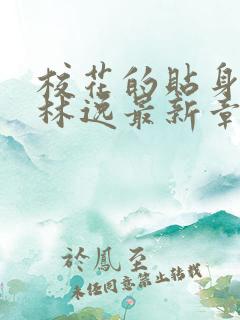 校花的貼身
林逸最新章
於鳳至
未经同意禁止转载